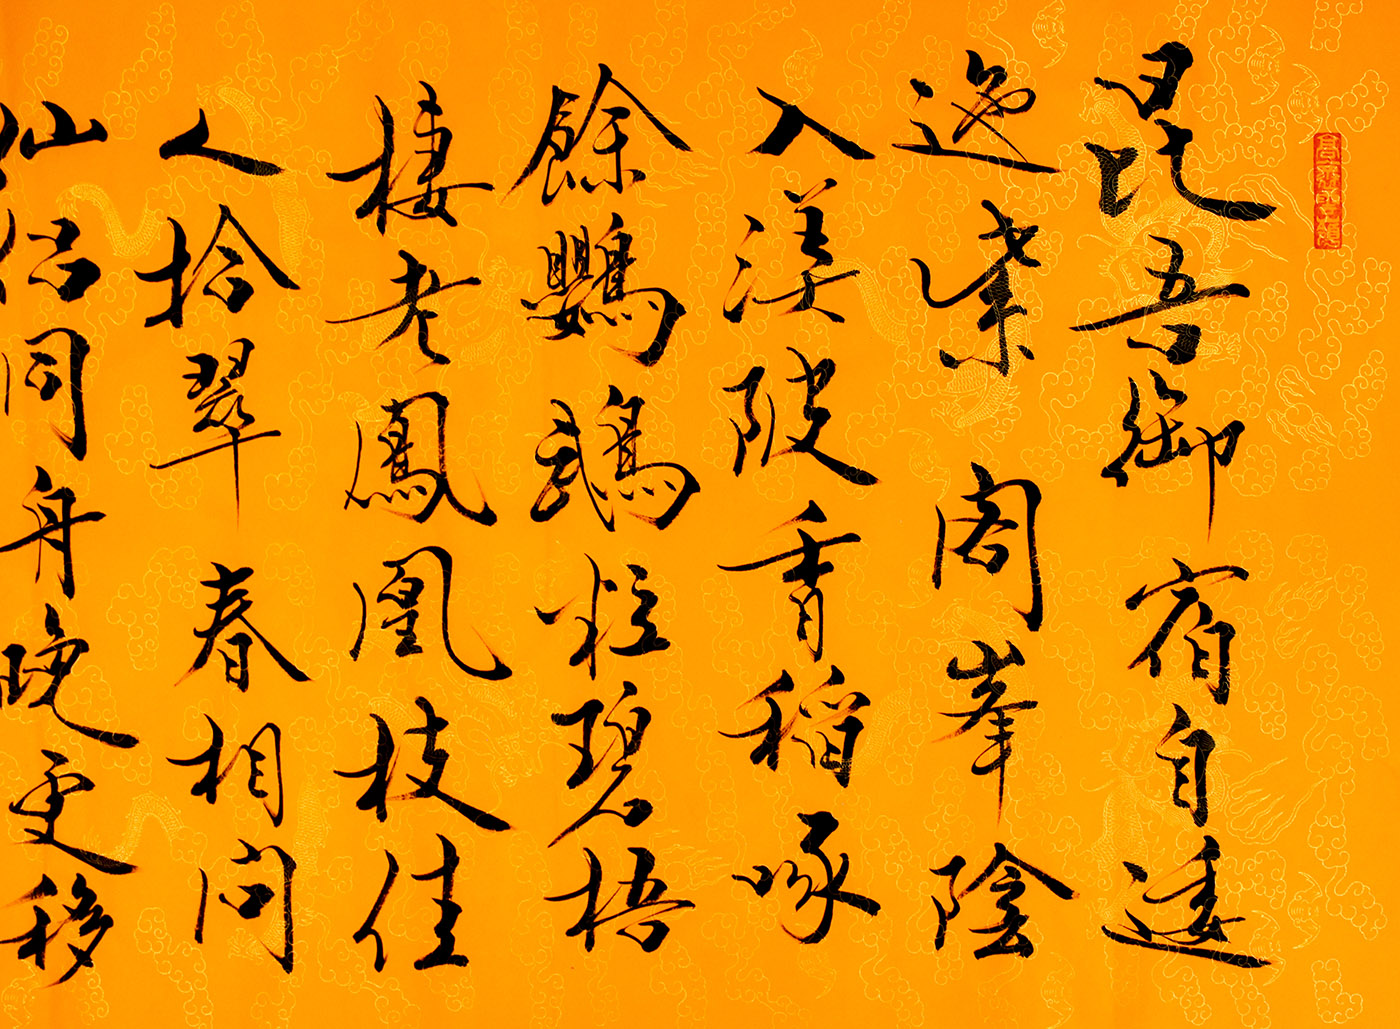 昆吾御宿自逶
迤紫閣峯陰
入渼陂香稻啄
餘鸚鵡粒碧梧
棲老鳳凰枝佳
人拾翠春相問
仙侶同舟晚更移